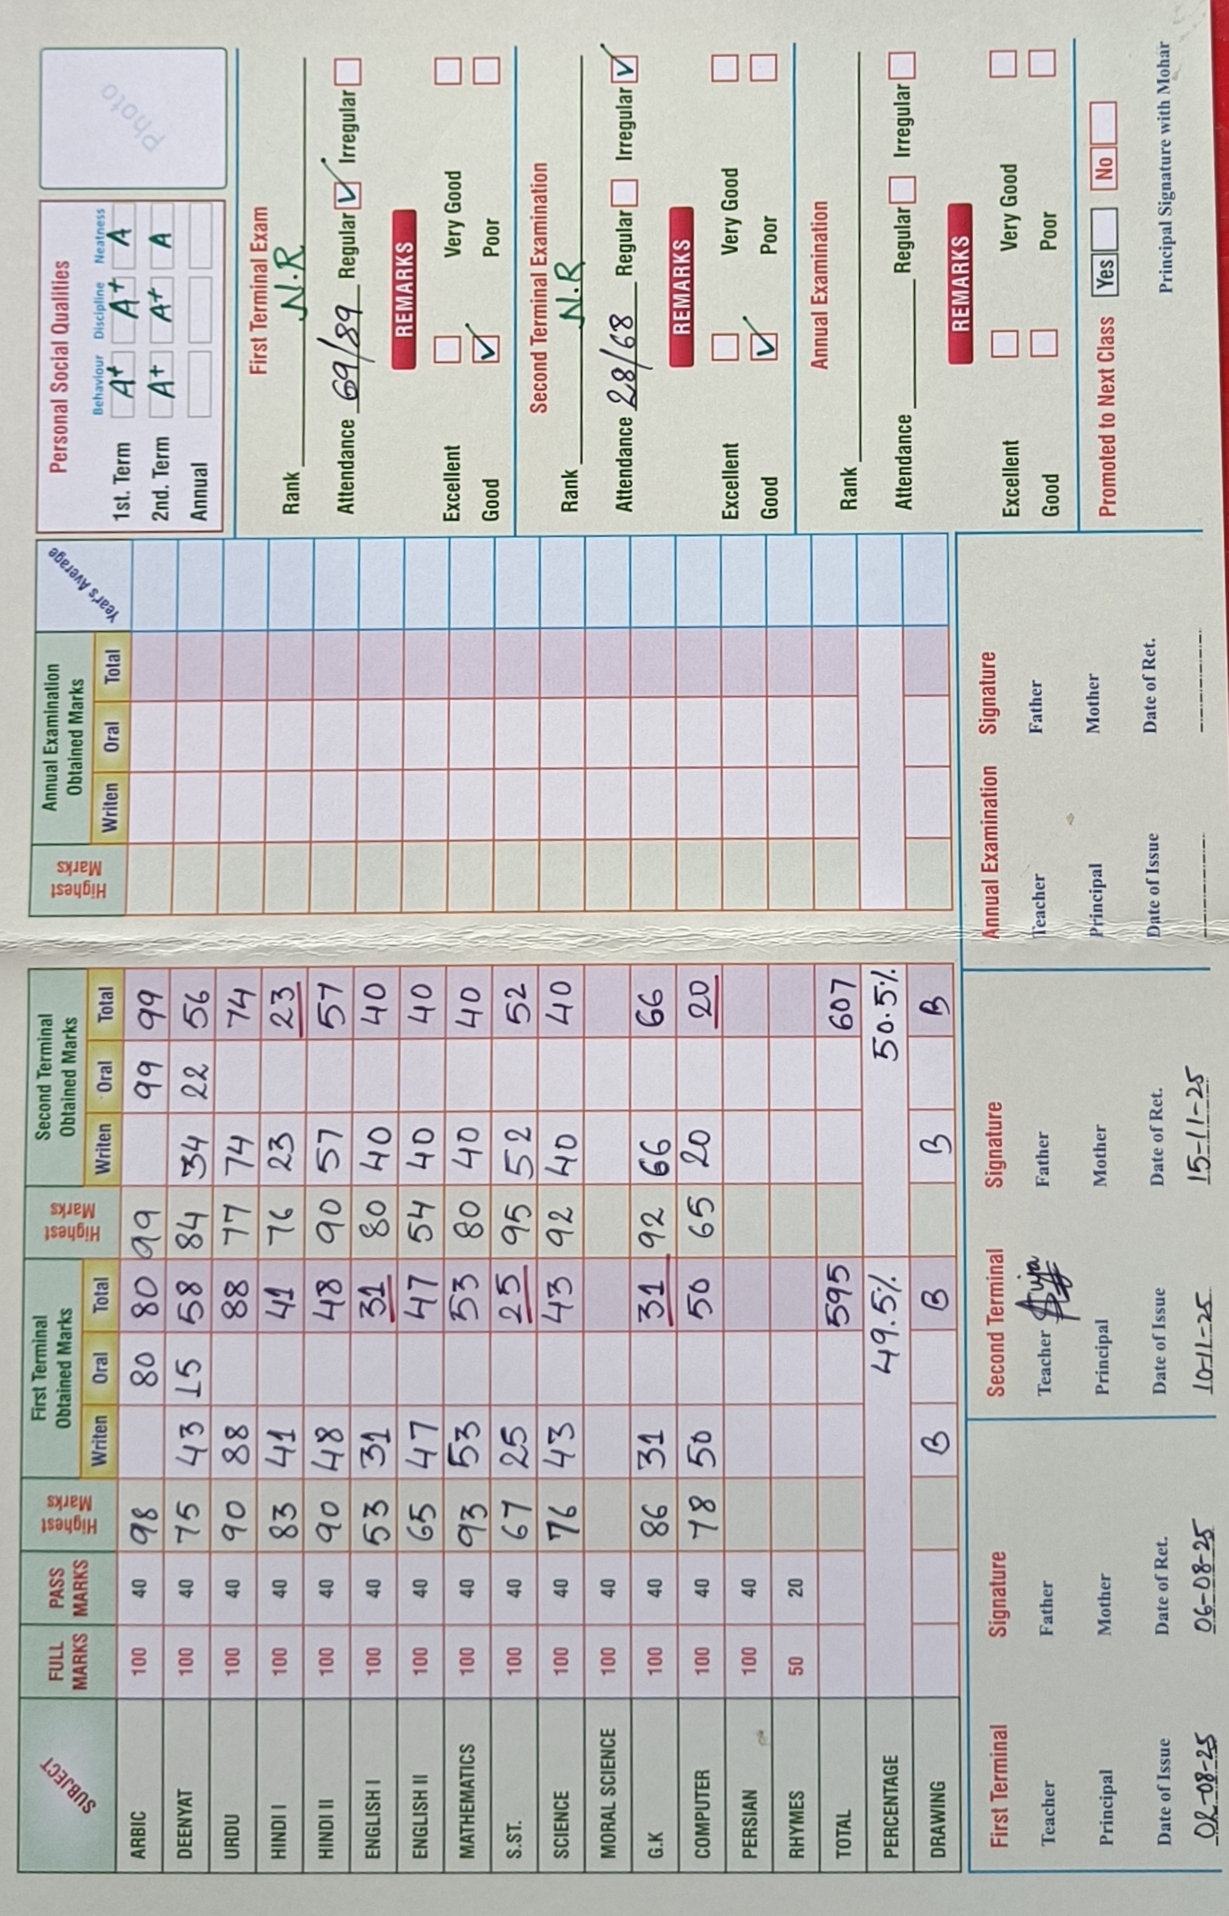 SUBJECT FULL MARKS PASS MARKS Highest Marks First Terminal Obtained Marks Highest Marks Second Terminal Obtained Marks Highest Marks Annual Examination Obtained Marks Year's Average
Writen Oral Total Writen Oral Total Writen Oral Total
ARBIC 100 40 98 80 80 99 99 99
DEENYAT 100 40 75 43 15 58 84 34 22 56
URDU 100 40 90 88 88 77 74 74
HINDI I 100 40 83 41 41 76 23 23
HINDI II 100 40 90 48 48 90 57 57
ENGLISH I 100 40 53 31 31 80 40 40
ENGLISH II 100 40 65 47 47 54 40 40
MATHEMATICS 100 40 93 53 53 80 40 40
S.ST. 100 40 67 25 25 95 52 52
SCIENCE 100 40 76 43 43 92 40 40
MORAL SCIENCE 100 40
G.K 100 40 86 31 31 92 66 66
COMPUTER 100 40 78 50 50 65 20 20
PERSIAN 100 40
RHYMES 50 20
TOTAL 595 607
PERCENTAGE 49.5% 50.5%
DRAWING B B B B
First Terminal Signature
Teacher Father
Principal Mother
Date of Issue Date of Ret.
02-08-25 06-08-25
Second Terminal Signature
Teacher Father
Principal Mother
Date of Issue Date of Ret.
10-11-25 15-11-25
Annual Examination Signature
Teacher Father
Principal Mother
Date of Issue Date of Ret.
Personal Social Qualities
Photo
Behaviour Discipline Neatness
1st. Term A+ A+ A
2nd. Term A+ A+ A
Annual
First Terminal Exam
Rank N.R
Attendance 69/89 Regular ✓ Irregular
REMARKS
Excellent Very Good
Good ✓ Poor
Second Terminal Examination
Rank N.R
Attendance 28/68 Regular Irregular ✓
REMARKS
Excellent Very Good
Good ✓ Poor
Annual Examination
Rank
Attendance Regular Irregular
REMARKS
Excellent Very Good
Good Poor
Promoted to Next Class Yes No
Principal Signature with Mohar